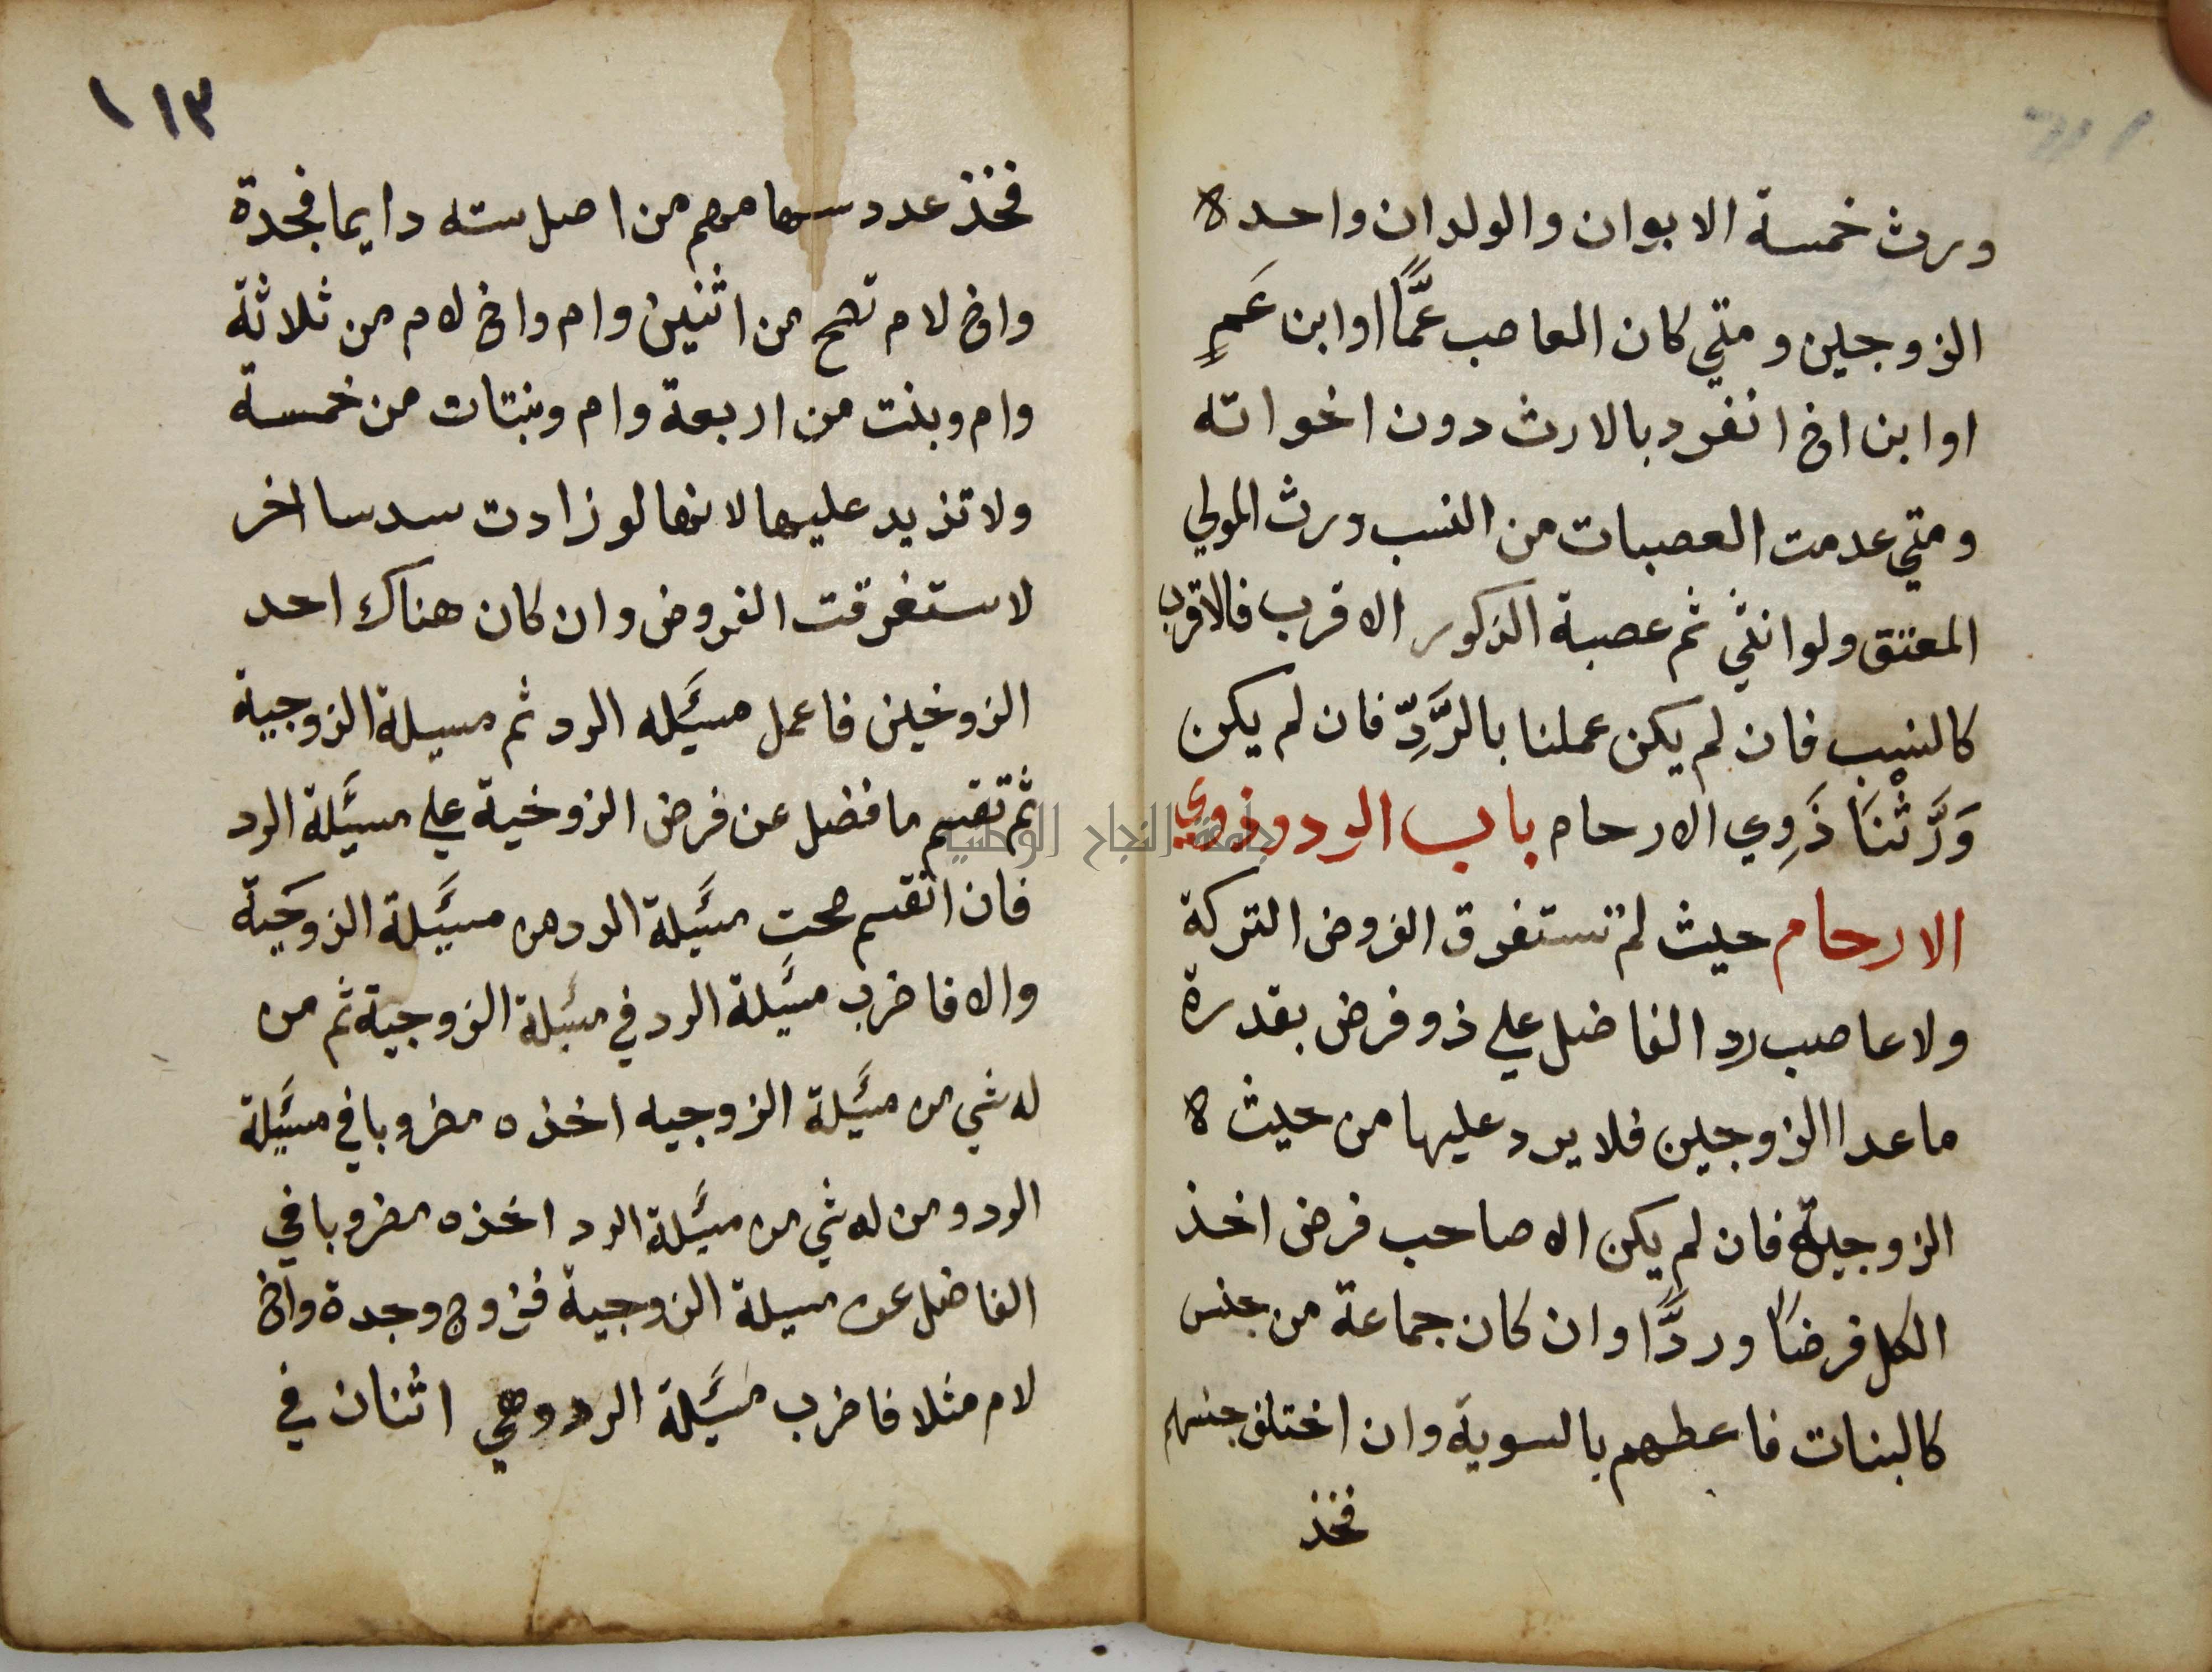 ورث خمسة الابوان والولدان واحد ه
الزوجين ومتي كان العاصب عمًّا اوابن عَمٍ
اوابن اخ انفرد بالارث دون اخواته
ومتي عدمت العصبات من النسب ورث المولي
المعتق ولوانثي ثم عصبة الذكور الاقرب فالاقرب
كالنسب فان لم يكن عملنا بالرَّدِّ فان لم يكن
وَرَّثْنَا ذَوِي الارحام باب الرد وذوي
الارحام حيث لم تستغرق الفروض التركة
ولا عاصب رد الفاضل علي ذو فرض بقدرة
ماعدا الزوجين فلا يرد عليها من حيث ه
الزوجية فان لم يكن الا صاحب فرض اخذ
الكل فرضاً وردًّا وان كان جماعة من جنس
كالبنات فاعطهم بالسوية وان اختلف جنسهم
فخذ
١١٣
فخذ عدد سهامهم من اصل سته دايما فجدة
واخ لام تصح من اثنين وام واخ لام من ثلاثة
وام وبنت من اربعة وام وبنتات من خمسة
ولا تزيد عليها لانها لو زادت سدسا اخر
لاستغرقت الفروض وان كان هناك احد
الزوخين فاعمل مسئَله الرد ثم مسيلة الزوجية
ثم تقسم ما فضل عن فرض الزوخية علي مسئَلة الرد
فان انقسم صحت مسئَلة الرد من مسئَلة الزوجية
والا فاضرب مسئَلة الرد في مسئلة الزوجية ثم من
له شي من مسئَلة الزوجيه اخذه مضروبا في مسئَلة
الرد ومن له شي من مسئَلة الرد اخذه مضروبا في
الفاضل عن مسيلة الزوجية فزوج وجدة واخ
لام مثلا فاضرب مسئَلة الرد وهي اثنان في
جامعة النجاح الوطنية